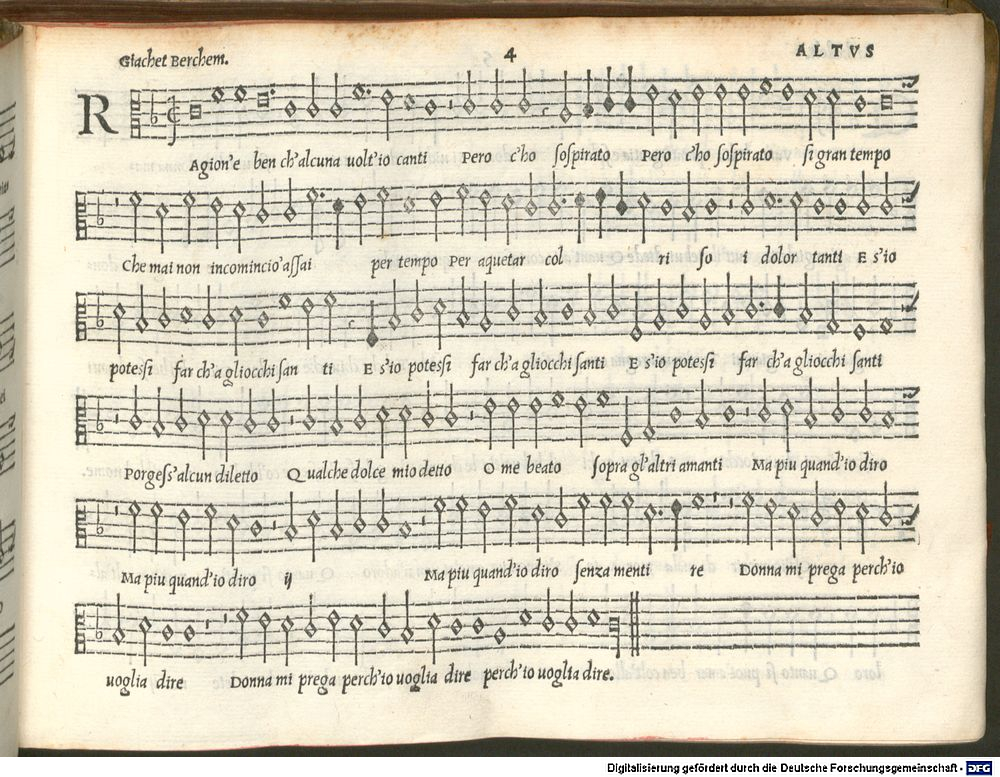 Giachet Berchem.
4
ALTVS
RAgion'e ben ch'alcuna uolt'io canti Pero c'ho sospirato Pero c'ho sospirato si gran tempo
Che mai non incomincio'assai per tempo Per aquetar col ri so i dolor tanti E s'io
potessi far ch'a gliocchi san ti E s'io potessi far ch'a gliocchi santi E s'io potessi far ch'a gliocchi santi
Porgess'alcun diletto Qualche dolce mio detto O me beato sopra gl'altri amanti Ma piu quand'io diro
Ma piu quand'io diro ij Ma piu quand'io diro senza menti re Donna mi prega perch'io
uoglia dire Donna mi prega perch'io uoglia dire perch'io uoglia dire.
Digitalisierung gefördert durch die Deutsche Forschungsgemeinschaft - DFG